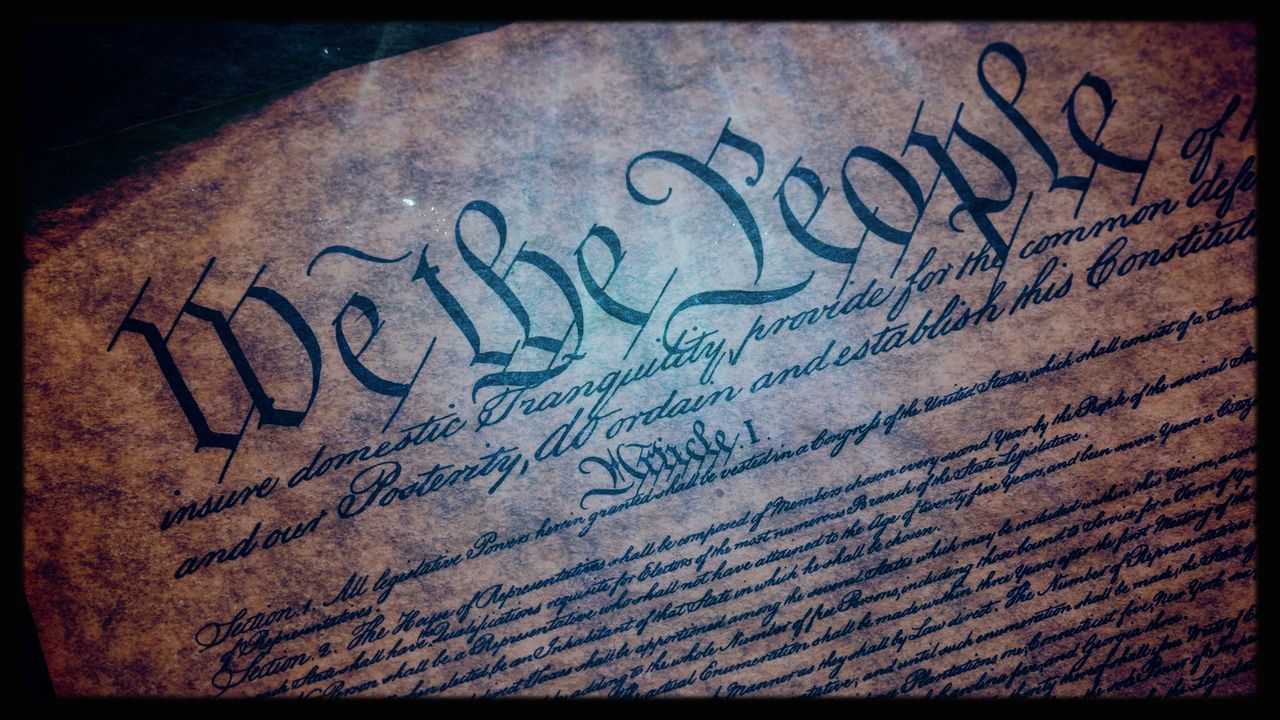 We the People
of
insure domestic Tranquility, provide for the common
and our Posterity, do ordain and establish this
Article. I.
Section. 1. All legislative Powers herein granted shall be vested in a Congress of the United States, which shall consist of a
of Representatives.
Section. 2. The House of Representatives shall be composed of Members chosen every second Year by the People of the several
State shall have Qualifications requisite for Electors of the most numerous Branch of the State Legislature.
Person shall be a Representative who shall not have attained to the Age of twenty five Years, and been seven Years a
elected, be an Inhabitant of that State in which he shall be chosen.
Taxes shall be apportioned among the several States which may be included within this Union,
adding to the whole Number of free Persons, including those bound to Service for a Term of
Enumeration shall be made within three Years after the first Meeting of the
Manner as they shall by Law direct. The Number of Representatives
and until such enumeration shall be made, the State of
Plantations one, Connecticut five, New York
and Georgia three.